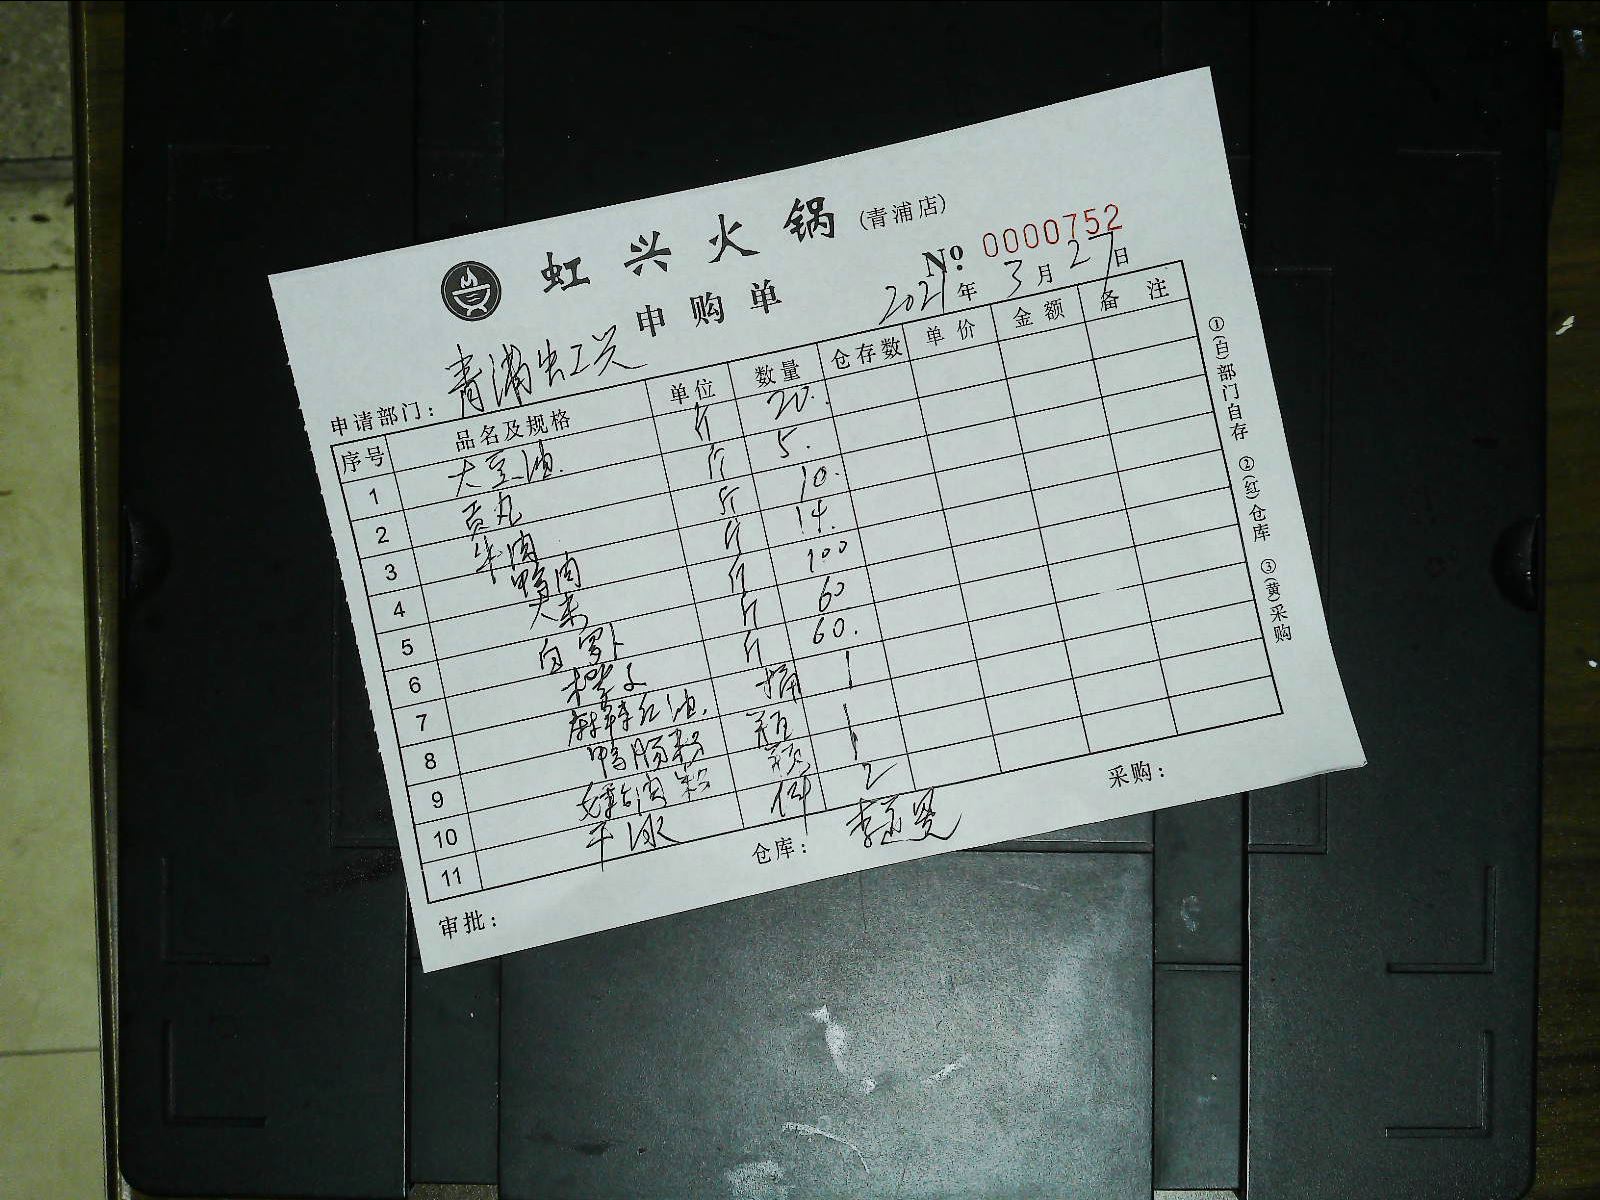 虹兴火锅 (青浦店)
申购单
№: 0000752
2021年3月27日
申请部门: 青浦虹兴
序号 品名及规格 单位 数量 仓存数 单价 金额 备注
1 大豆油 斤 20.
2 贡丸 斤 5.
3 牛肉 斤 10.
4 鸭肉 斤 14.
5 大米 斤 100
6 白萝卜 斤 60
7 橙子 斤 60.
8 麻辣红油 桶 1
9 鸭肠粉 瓶 1
10 嫩肉粉 瓶 1
11 干冰 件 2
审批: 仓库: 采购:
①(白)部门自存 ②(红)仓库 ③(黄)采购